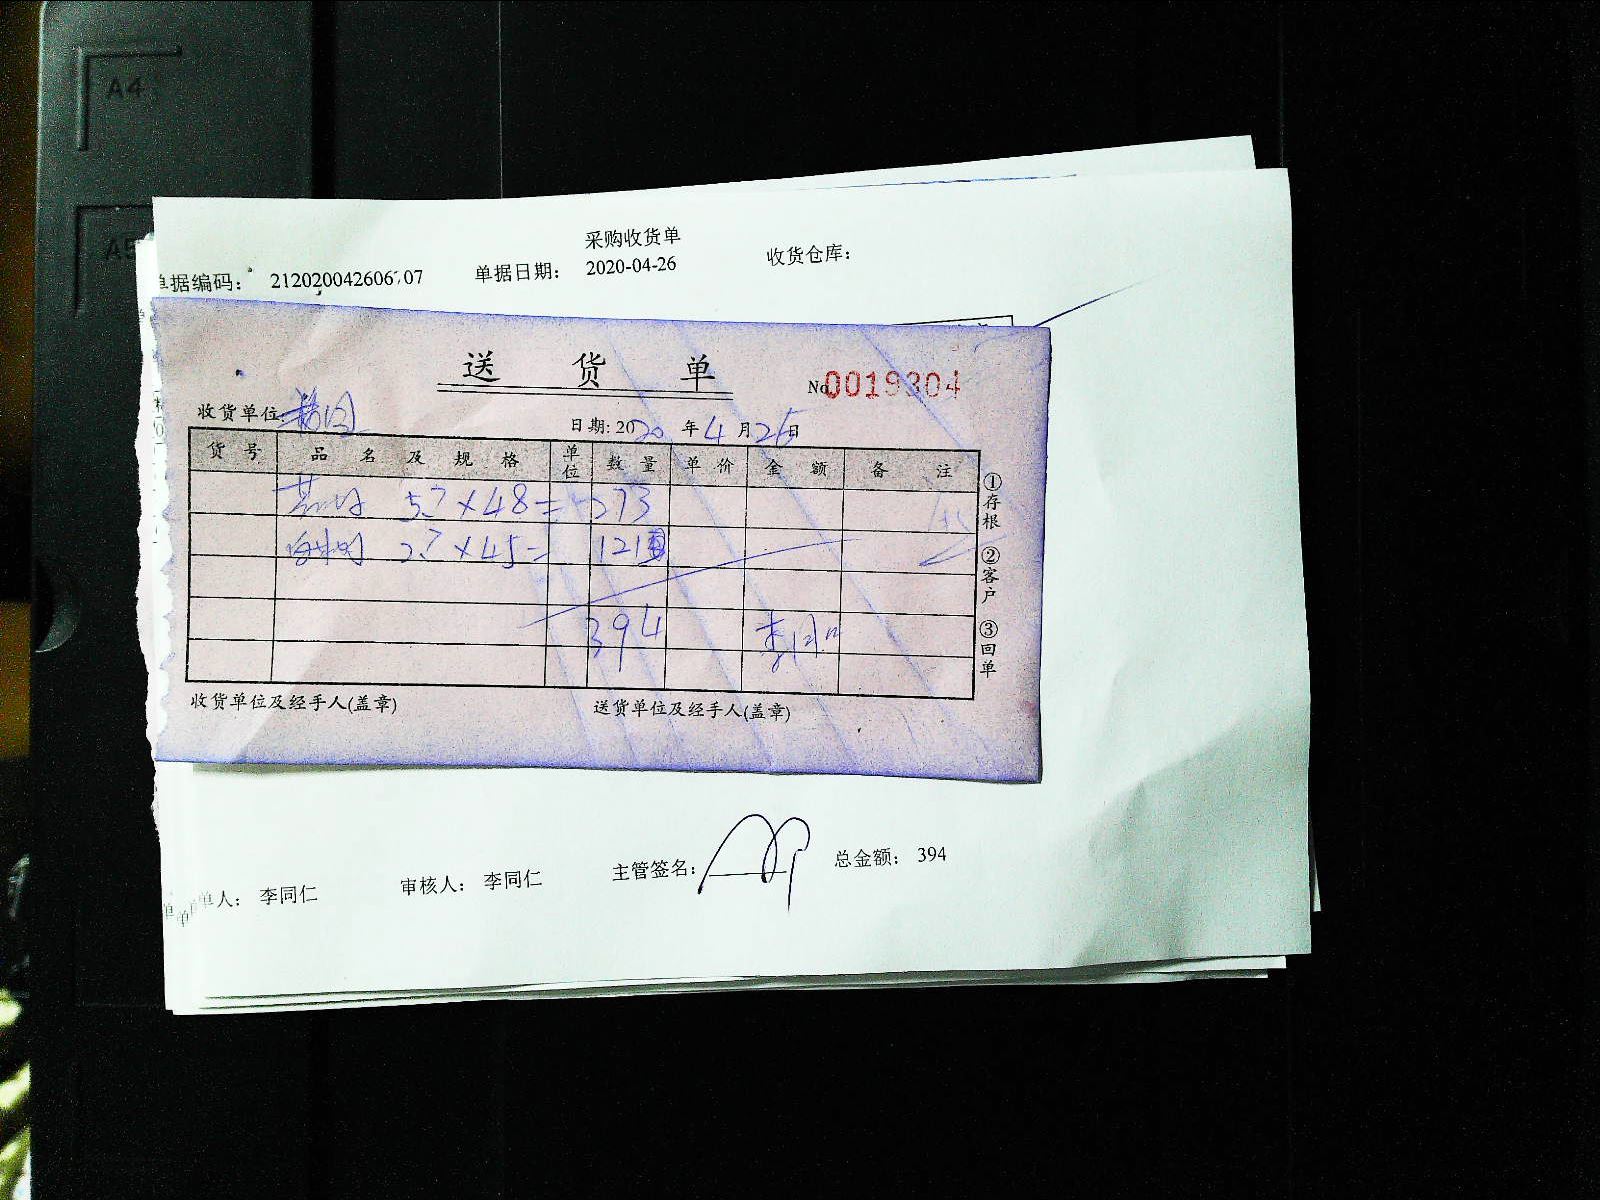 A4
A5
采购收货单
单据编码： 212020042606 07 单据日期： 2020-04-26 收货仓库：
送 货 单
No 0019304
收货单位: 日期: 2020 年 4 月 25 日
货 号 品 名 及 规 格 单位 数 量 单 价 金 额 备 注
5.7×48= 273
2.7×45= 121
394 李同仁
①存根 ②客户 ③回单
收货单位及经手人(盖章) 送货单位及经手人(盖章)
单人： 李同仁 审核人： 李同仁 主管签名： 总金额： 394